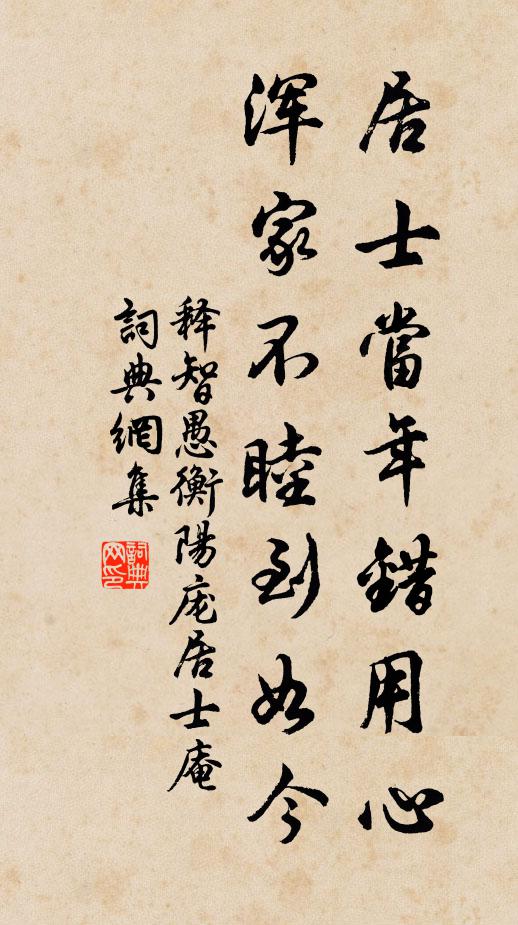 居士當年錯用心
浑家不睦到如今
释智愚衡陽庞居士庵
詞典網集
詞典
网印